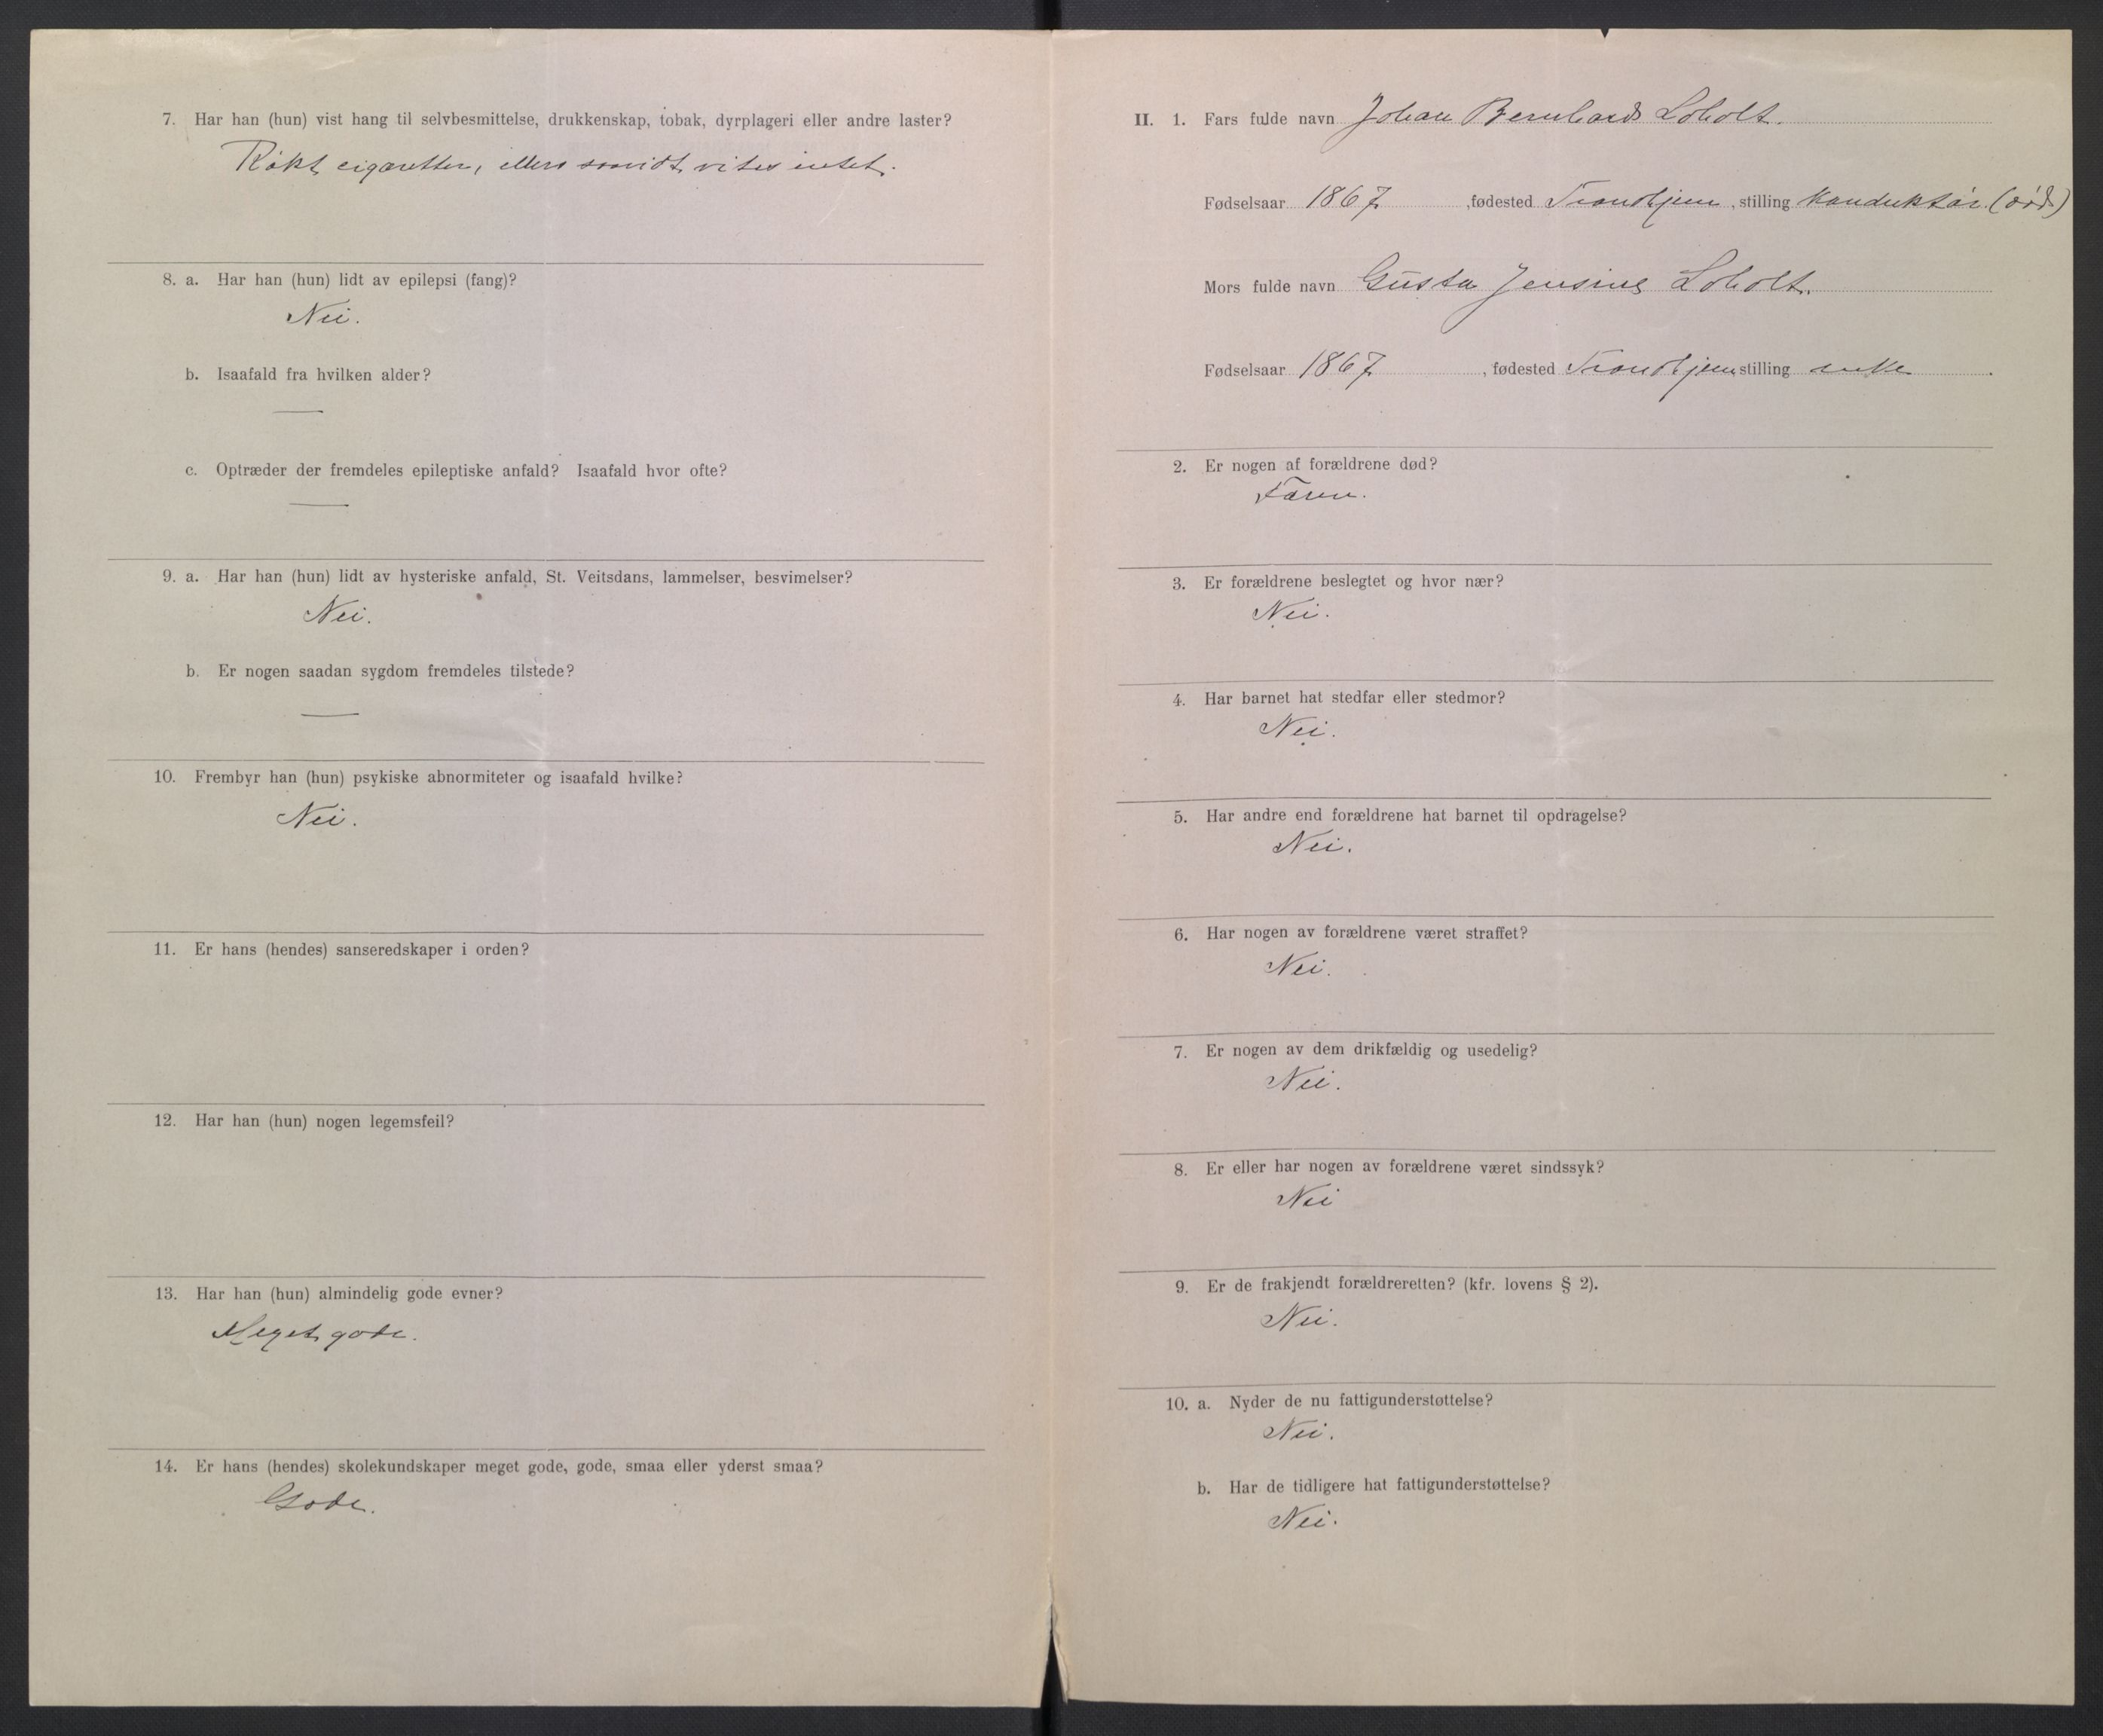 7. Har han (hun) vist hang til selvbesmittelse, drukkenskap, tobak, dyrplageri eller andre laster?
Røkt cigaretter, ellers saavidt vites intet.
8. a. Har han (hun) lidt av epilepsi (fang)?
Nei.
b. Isaafald fra hvilken alder?
—
c. Optræder der fremdeles epileptiske anfald? Isaafald hvor ofte?
—
9. a. Har han (hun) lidt av hysteriske anfald, St. Veitsdans, lammelser, besvimelser?
Nei.
b. Er nogen saadan sygdom fremdeles tilstede?
—
10. Frembyr han (hun) psykiske abnormiteter og isaafald hvilke?
Nei.
11. Er hans (hendes) sanseredskaper i orden?
12. Har han (hun) nogen legemsfeil?
13. Har han (hun) almindelig gode evner?
Meget gode.
14. Er hans (hendes) skolekundskaper meget gode, gode, smaa eller yderst smaa?
Gode.
II. 1. Fars fulde navn Johan Bernhard Loholt.
Fødselsaar 1867, fødested Trondhjem, stilling konduktør. (død)
Mors fulde navn Gusta Jensine Loholt.
Fødselsaar 1867, fødested Trondhjem, stilling enke.
2. Er nogen af forældrene død?
Faren.
3. Er forældrene beslegtet og hvor nær?
Nei.
4. Har barnet hat stedfar eller stedmor?
Nei.
5. Har andre end forældrene hat barnet til opdragelse?
Nei.
6. Har nogen av forældrene været straffet?
Nei.
7. Er nogen av dem drikfældig og usedelig?
Nei.
8. Er eller har nogen av forældrene været sindssyk?
Nei
9. Er de frakjendt forældreretten? (kfr. lovens § 2).
Nei.
10. a. Nyder de nu fattigunderstøttelse?
Nei.
b. Har de tidligere hat fattigunderstøttelse?
Nei.